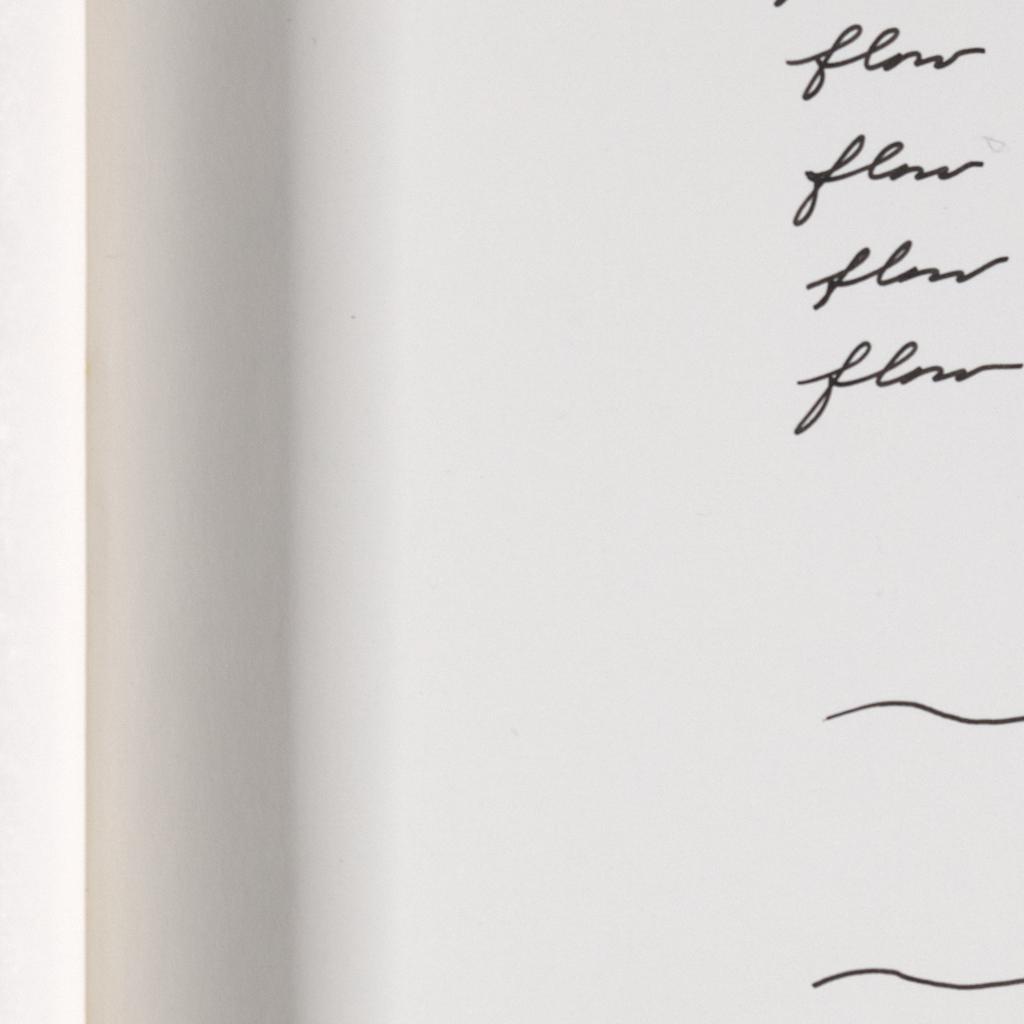 flow
flow
flow
flow